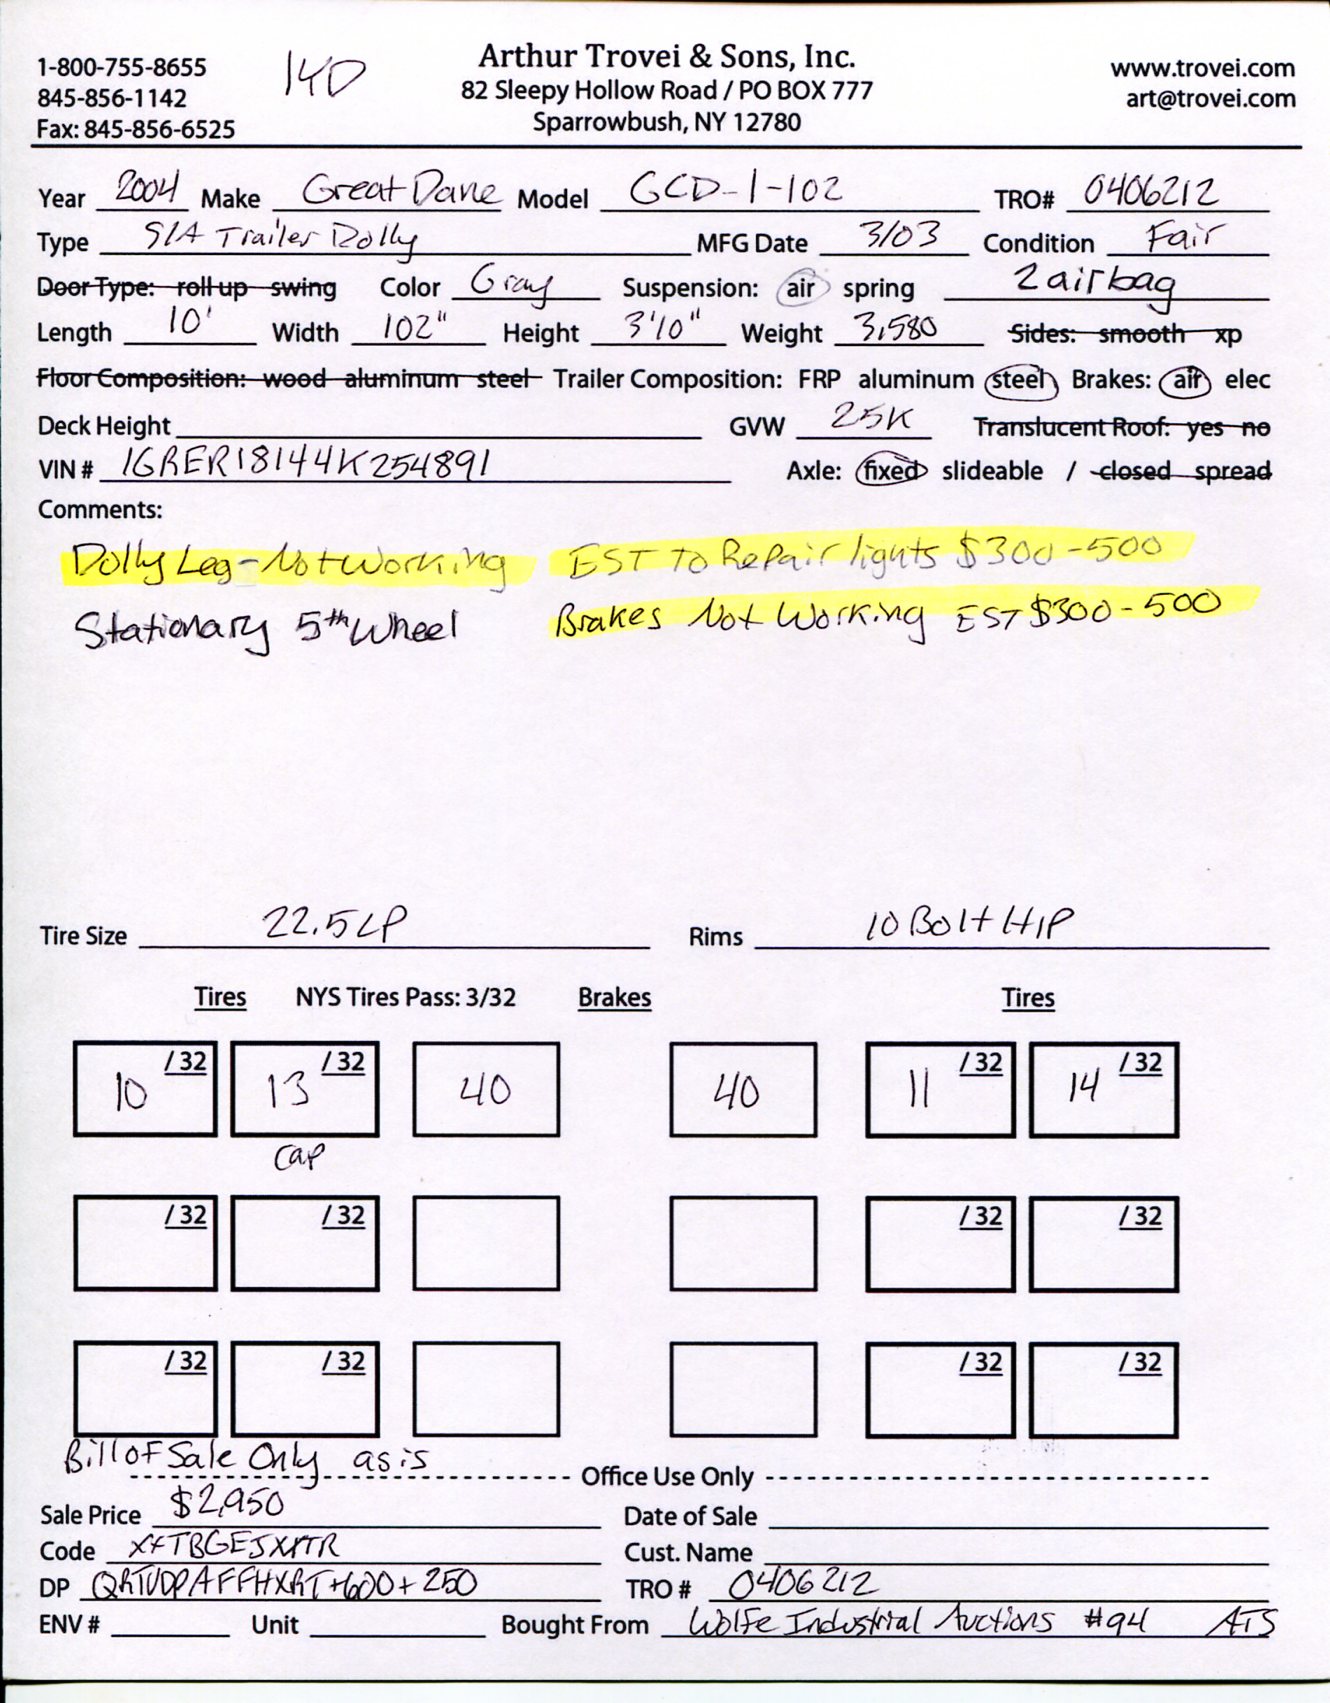 1-800-755-8655
845-856-1142
Fax: 845-856-6525
140
Arthur Trovei & Sons, Inc.
82 Sleepy Hollow Road / PO BOX 777
Sparrowbush, NY 12780
www.trovei.com
art@trovei.com
Year 2004 Make Great Dane Model GCD-1-102 TRO# 0406212
Type S/A Trailer Dolly MFG Date 3/03 Condition Fair
Door Type: roll up swing Color Gray Suspension: air spring 2 air bag
Length 10' Width 102" Height 3'10" Weight 3,580 Sides: smooth xp
Floor Composition: wood aluminum steel Trailer Composition: FRP aluminum steel Brakes: air elec
Deck Height GVW 25K Translucent Roof: yes no
VIN # 1GRER18144K254891 Axle: fixed slideable / closed spread
Comments:
Dolly Leg - Not Working EST To Repair lights $300-500
Stationary 5th Wheel Brakes Not Working EST $300-500
Tire Size 22.5 LP Rims 10 Bolt H/P
Tires NYS Tires Pass: 3/32 Brakes Tires
10 /32 13 /32 40 40 11 /32 14 /32
Cap
/32 /32 /32 /32
/32 /32 /32 /32
Bill of Sale Only as is
Office Use Only
Sale Price $2,950 Date of Sale
Code Cust. Name
DP +600+250 TRO # 0406212
ENV # Unit Bought From Wolfe Industrial Auctions #94 ATS